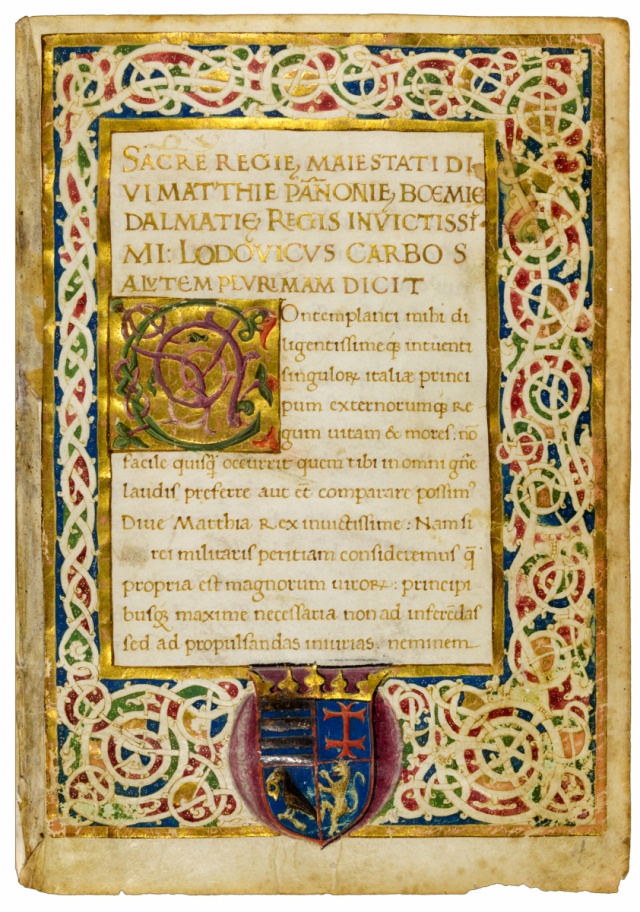 SACRE REGIĘ MAIESTATI DI
VI MATTHIE PAÑONIĘ BOEMIE
DALMATIĘ REGIS INVICTISSI
MI: LODOVICVS CARBO S
ALVTEM PLVRIMAM DICIT
COntemplanti mihi di
ligentissimeq̃ intuenti
singuloꝝ italiæ princi
pum externorumqꝫ Re
gum uitam & mores: nō
facile quisq̃ occurrit quem tibi in omni gñe
laudis preferre aut et̄ comparare possimꝰ
Diue Matthia Rex inuictissime: Nam si
rei militaris peritiam consideremus q̄
propria est magnorum uiroꝝ: principi
busqꝫ maxime necessaria non ad inferēdas
sed ad propulsandas iniurias neminem